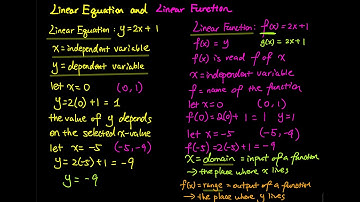 Linear Equation and Linear Function
Linear Equation: y = 2x + 1
x = independent variable
y = dependent variable
let x = 0 (0, 1)
y = 2(0) + 1 = 1
the value of y depends
on the selected x-value
let x = -5 (-5, -9)
y = 2(-5) + 1 = -9
y = -9
Linear Function: f(x) = 2x + 1
f(x) = y g(x) = 2x + 1
f(x) is read f of x
x = independent variable
f = name of the function
let x = 0 (0, 1)
f(0) = 2(0) + 1 = 1 y = 1
let x = -5 (-5, -9)
f(-5) = 2(-5) + 1 = -9
x = domain = input of a function
→ the place where x lives
f(x) = range = output of a function
→ the place where y lives